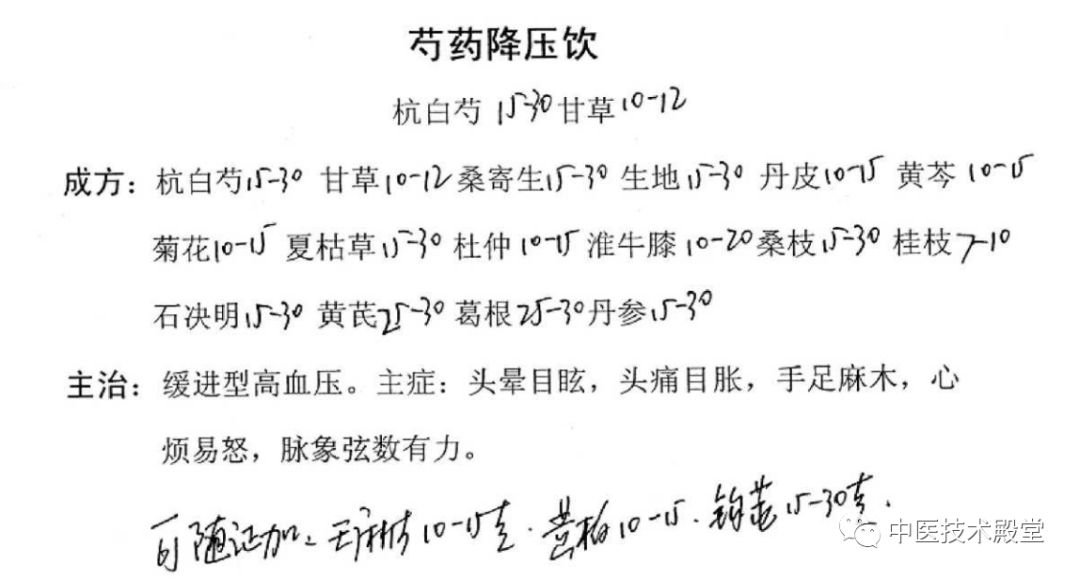 芍药降压饮
杭白芍 15-30 甘草 10-12
成方：杭白芍15-30 甘草10-12 桑寄生15-30 生地15-30 丹皮10-15 黄芩 10-15
菊花10-15 夏枯草15-30 杜仲10-15 淮牛膝10-20 桑枝15-30 桂枝7-10
石决明15-30 黄芪25-30 葛根25-30 丹参15-30
主治：缓进型高血压。主症：头晕目眩，头痛目胀，手足麻木，心
烦易怒，脉象弦数有力。
可随证加：天麻 10-15克. 黄柏10-15. 钩藤15-30克.
中医技术殿堂